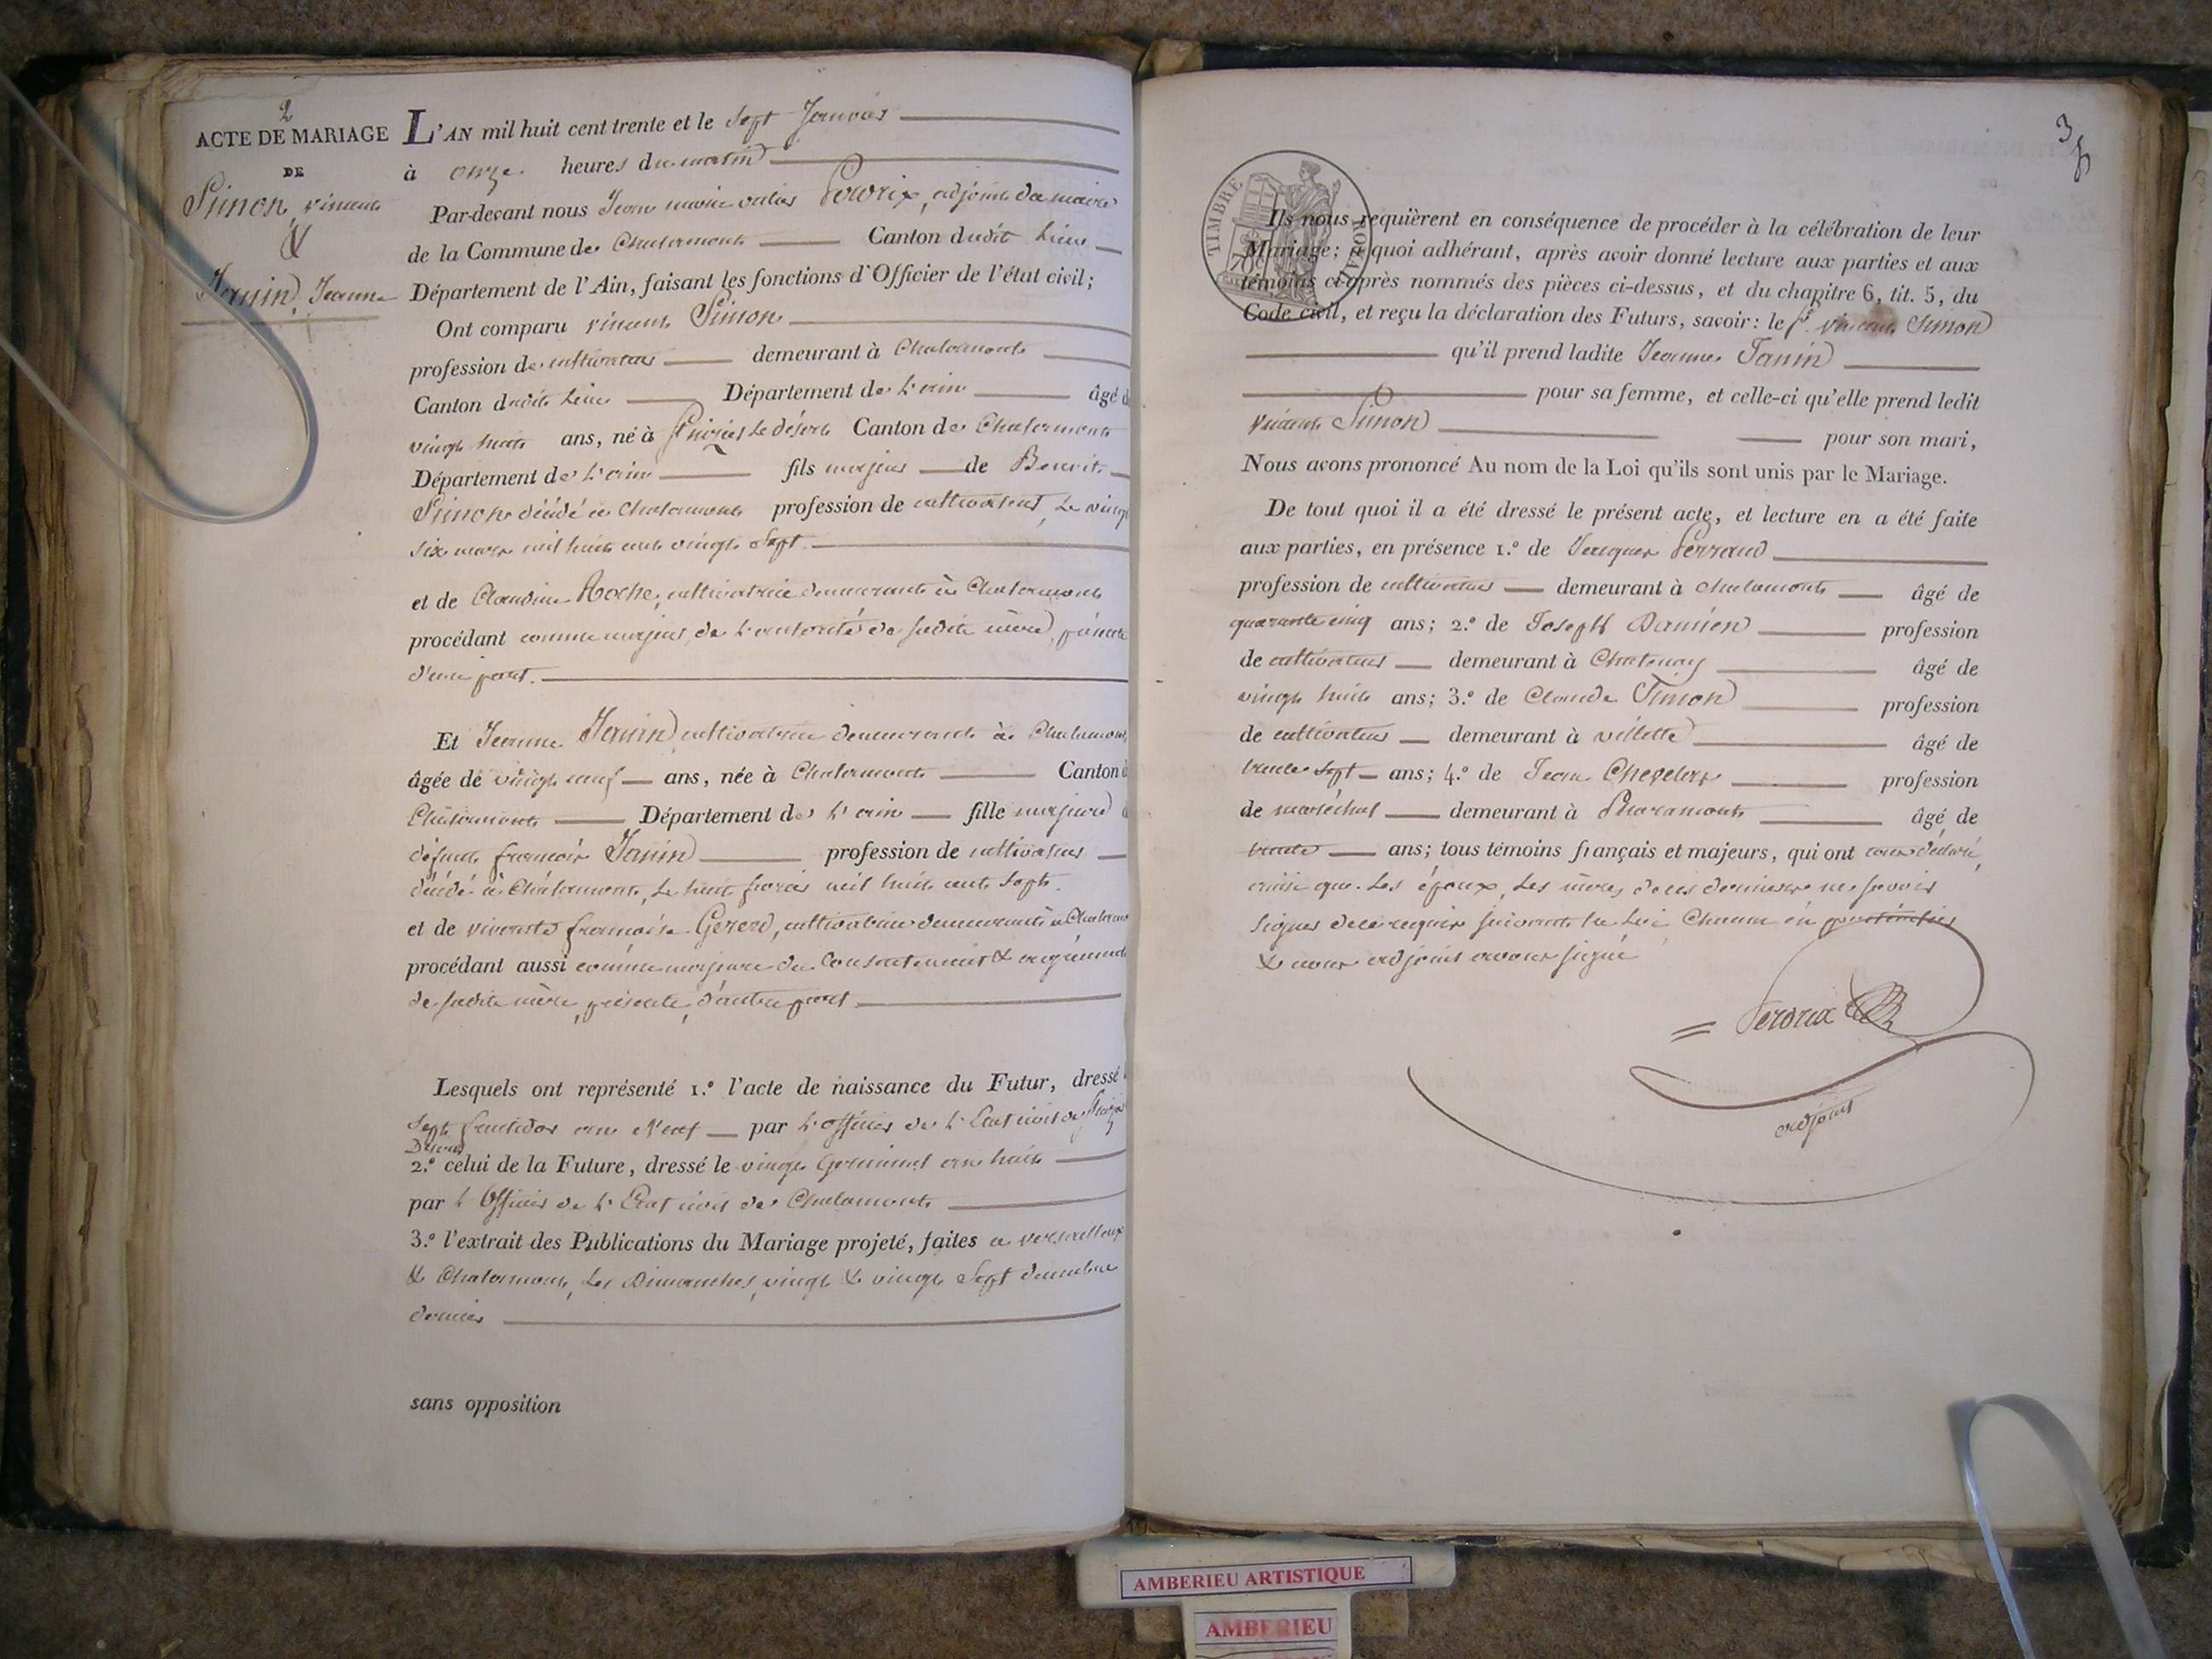 2
ACTE DE MARIAGE
DE
Simon, vincent
&
Janin, Jeanne
L'AN mil huit cent trente et le Sept Janvier
à onze heures du matin
Par-devant nous Jean marie Perdrix, adjoint du maire
de la Commune de Chalamont Canton dudit Lieu
Département de l'Ain, faisant les fonctions d'Officier de l'état civil;
Ont comparu vincent Simon
profession de cultivateur demeurant à Chalamont
Canton dudit Lieu Département de L'ain âgé d
vingt huit ans, né à le désert Canton de Chalamont
Département de L'ain fils majeur de Benoit
Simon décédé à Chalamont profession de cultivateur, Le vingt
six mars mil huit cent vingt Sept.
et de Claudine Roche, cultivatrice demeurante à Chalamont
procédant comme majeur, de L'autorité de sadite mère, présente
d'une part.
Et Jeanne Janin cultivatrice demeurante à Chalamont
âgée de vingt neuf ans, née à Chalamont Canton d
Chalamont Département de L'ain fille majeure d
défunt françois Janin profession de cultivateur
décédé à Chalamont, Le huit mil huit cent Sept.
et de vivante françoise Gererd, cultivatrice demeurante à Chalamont
procédant aussi comme majeure du Consentement & agrément
de sadite mère, présente, d'autre part
Lesquels ont représenté 1.º l'acte de naissance du Futur, dressé l
Sept fructidor an Neuf par L'officier de L'Etat civil de
Désert
2.º celui de la Future, dressé le vingt Germinal an huit
par L'Officier de L'Etat civil de Chalamont
3.º l'extrait des Publications du Mariage projeté, faites a versailleux
& Chalamont, Les Dimanches, vingt & vingt Sept décembre
dernier
sans opposition
3
TIMBRE ROYAL
Ils nous requièrent en conséquence de procéder à la célébration de leur
Mariage; à quoi adhérant, après avoir donné lecture aux parties et aux
témoins ci-après nommés des pièces ci-dessus, et du chapitre 6, tit. 5, du
Code civil, et reçu la déclaration des Futurs, savoir: le Sr. vincent Simon
qu'il prend ladite Jeanne Janin
pour sa femme, et celle-ci qu'elle prend ledit
vincent Simon pour son mari,
Nous avons prononcé Au nom de la Loi qu'ils sont unis par le Mariage.
De tout quoi il a été dressé le présent acte, et lecture en a été faite
aux parties, en présence 1.º de Jacques Perraud
profession de cultivateur demeurant à Chalamont âgé de
quarante cinq ans; 2.º de Joseph Damien profession
de cultivateur demeurant à Chatenay âgé de
vingt huit ans; 3.º de Claude Simon profession
de cultivateur demeurant à villette âgé de
trente Sept ans; 4.º de Jean Chevelux profession
de maréchal demeurant à Chalamont âgé de
trente ans; tous témoins français et majeurs, qui ont tous déclaré,
ainsi que Les époux, Les mères de ces derniers ne savoir
signer de ce requis suivant la Loi Chacun en
& nous adjoint avons signé
Perdrix
adjoint
AMBERIEU ARTISTIQUE
AMBERIEU